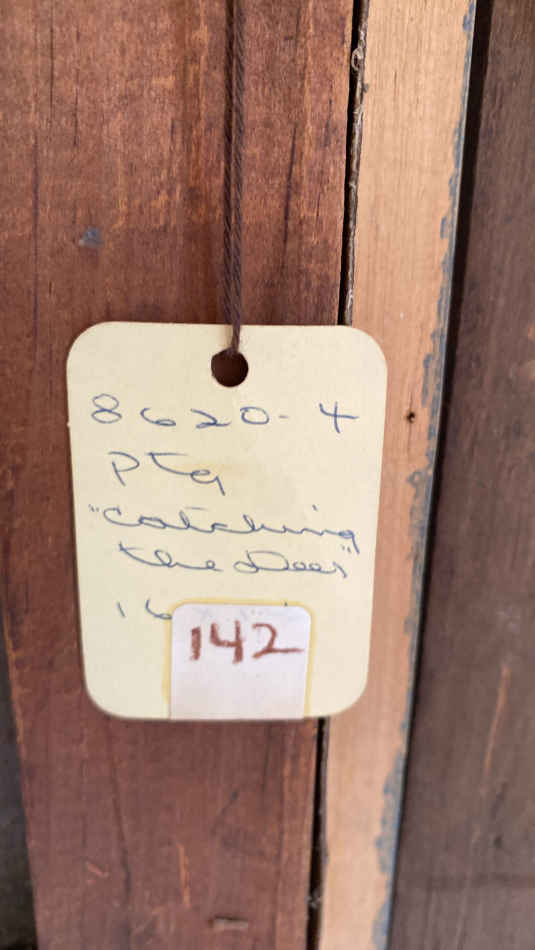 8620-4
ptg
"catching
the Deer"
16
142